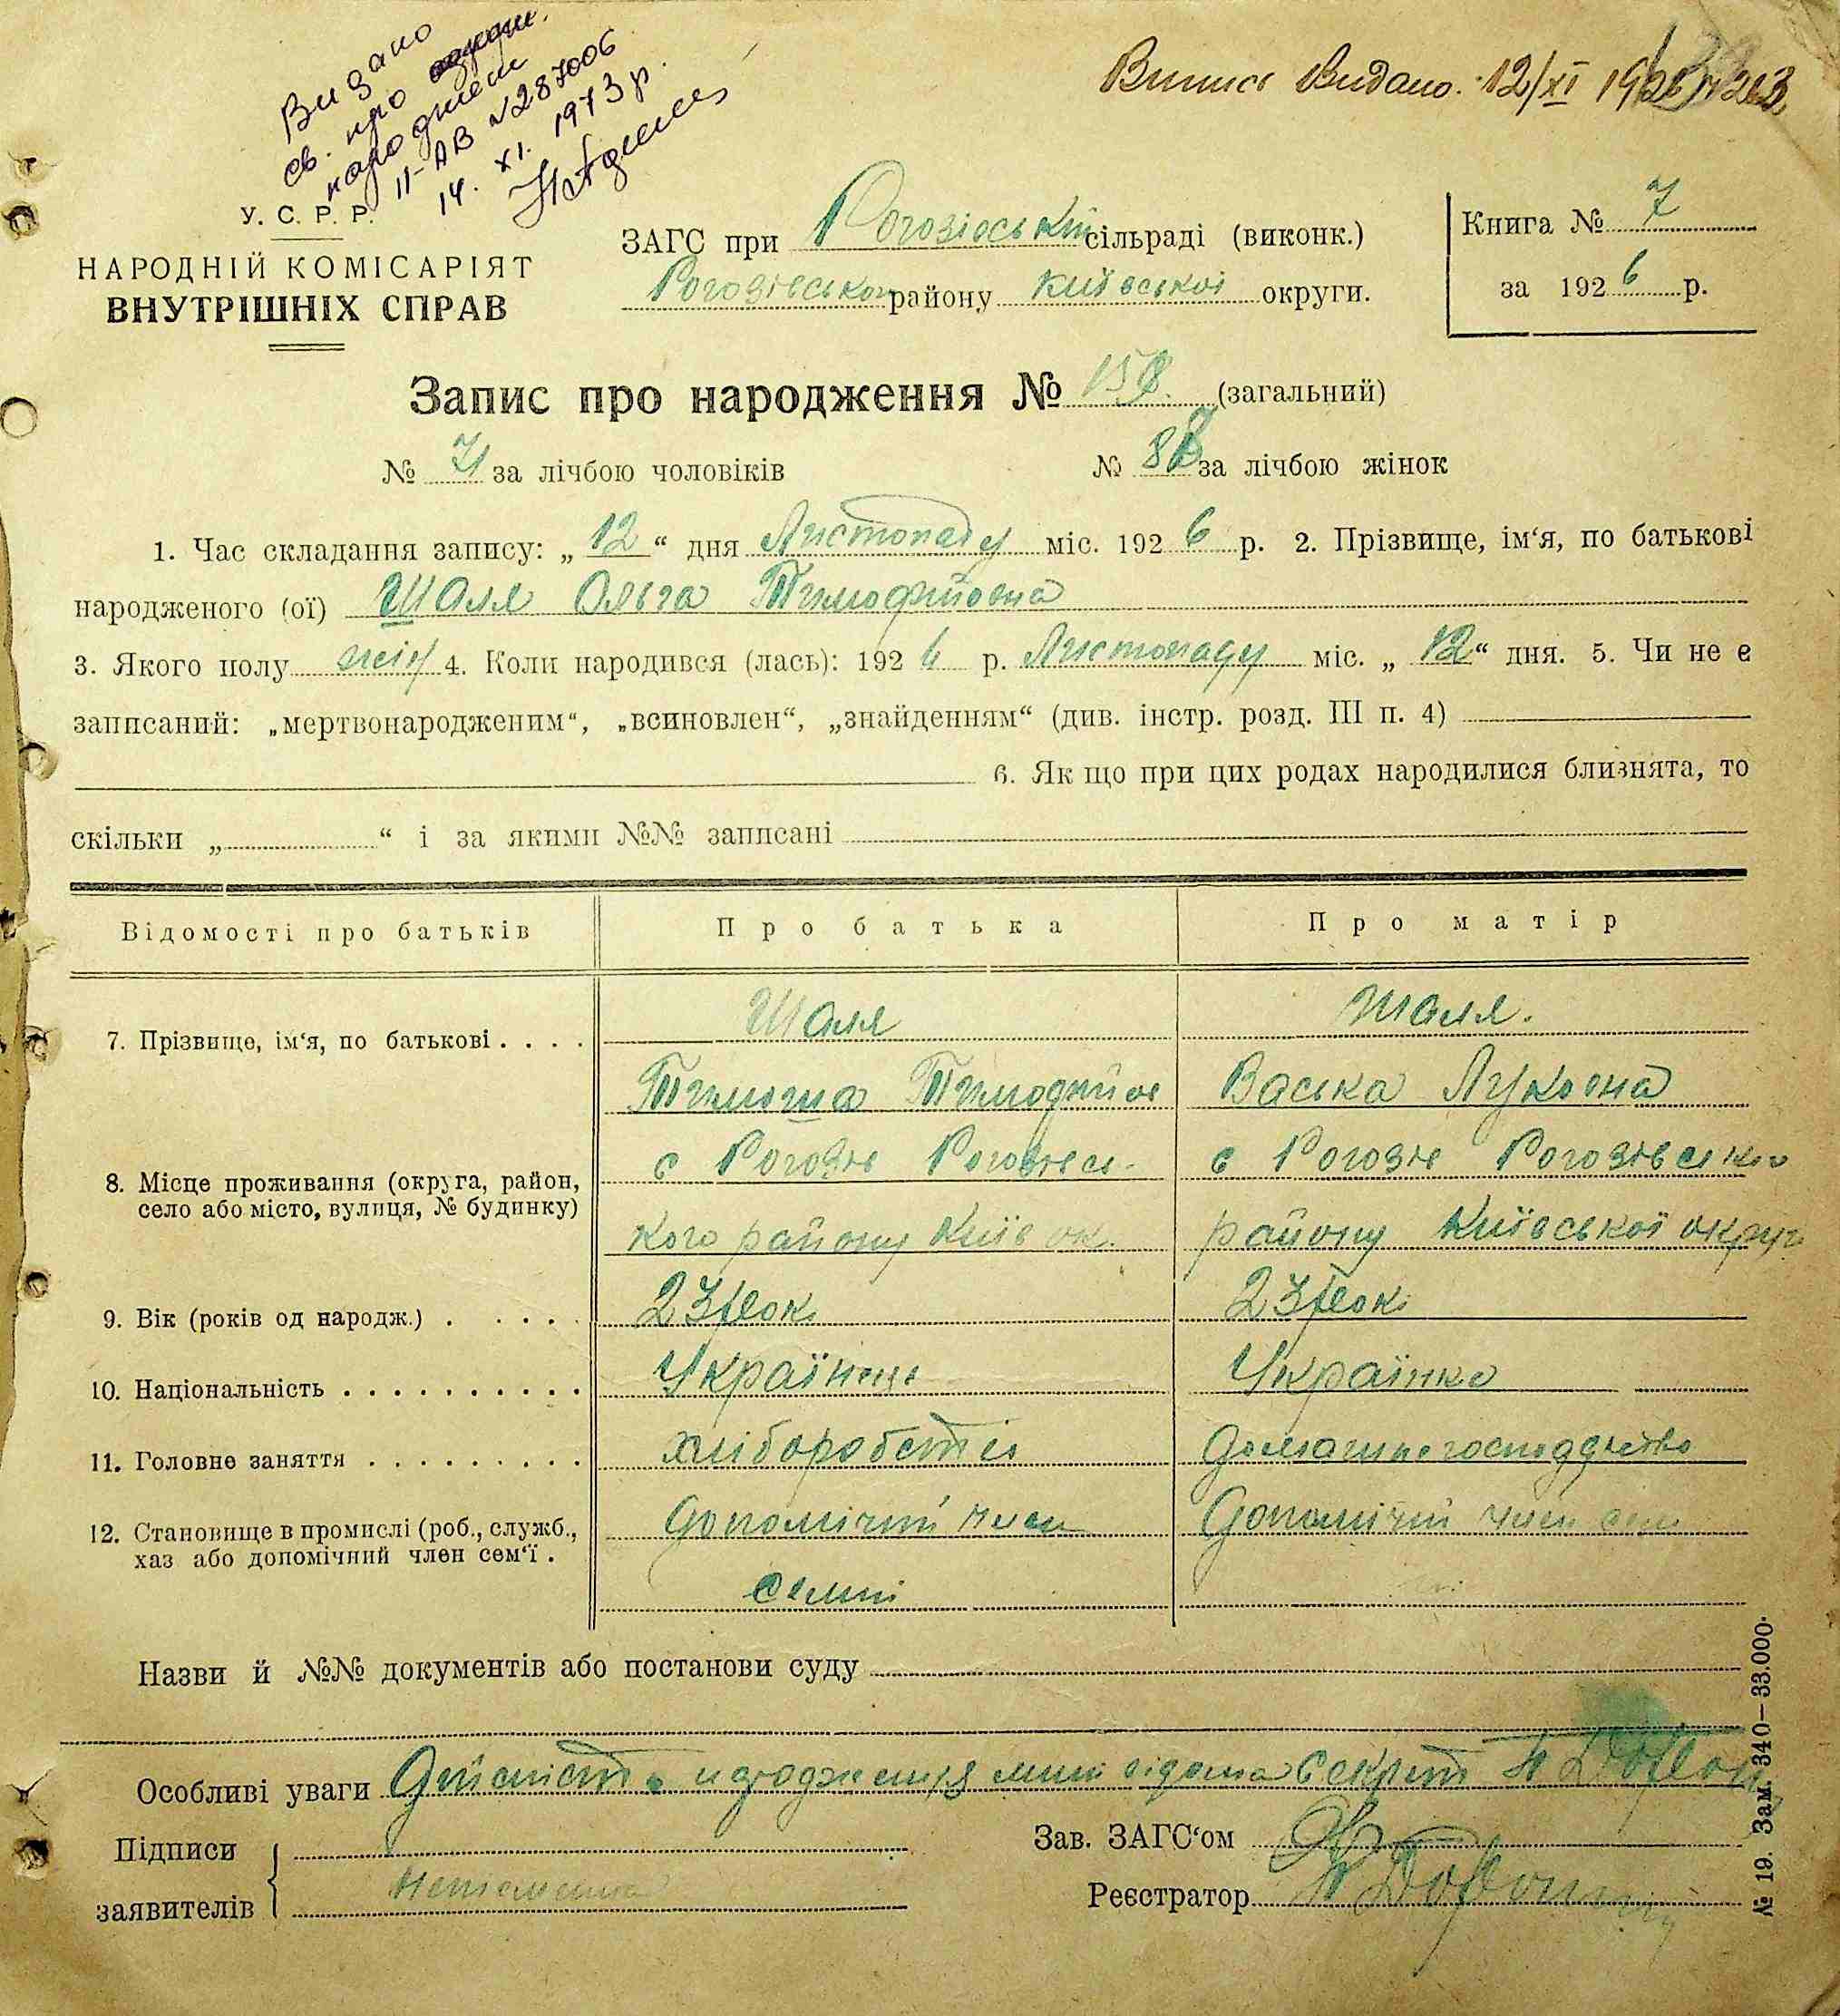 Видано
св. про
народжен
II-АВ №287006
14. XI. 1973 р.
Випись видано. 12/XI 1926
У. С. Р. Р.
НАРОДНІЙ КОМІСАРІЯТ
ВНУТРІШНІХ СПРАВ
ЗАГС при Рогозівській сільраді (виконк.)
Рогозівського району Київської округи.
Книга № 7
за 1926 р.
Запис про народження № 158. (загальний)
№ 71 за лічбою чоловіків
№ 88 за лічбою жінок
1. Час складання запису: „12“ дня Листопаду міс. 1926 р. 2. Прізвище, ім‘я, по батькові
народженого (ої) Шаля Ольга Тимофійовна
3. Якого полу жін 4. Коли народився (лась): 1926 р. Листопаду міс. „12“ дня. 5. Чи не є
записаний: „мертвонародженим“, „всиновлен“, „знайденням“ (див. інстр. розд. III п. 4)
6. Як що при цих родах народилися близнята, то
скільки „ “ і за якими №№ записані
Відомості про батьків
Про батька
Про матір
7. Прізвище, ім‘я, по батькові . . . .
Шаля
Шаля.
Тимоша Тимофійов
Васька Луковна
8. Місце проживання (округа, район,
село або місто, вулиця, № будинку)
с Рогозів Рогозівсь-
с Рогозів Рогозівсько
кого району Київ ок.
району Київської округ
9. Вік (років од народж.) . . . . .
23 рок
23 рок
10. Національність . . . . . . . . . .
Українець
Українка
11. Головне заняття . . . . . . . . .
хліборобство
домашнє господарство
12. Становище в промислі (роб., служб.,
хаз або допомічний член сем‘ї .
Допомічний член
Допомічний член сем
семьї
Назви й №№ документів або постанови суду
Особливі уваги Дійсність народження мині відома Секрет
Підписи
заявителів
Неписьменна
Зав. ЗАГС‘ом
Реєстратор
№ 19. Зам. 340—33.000.